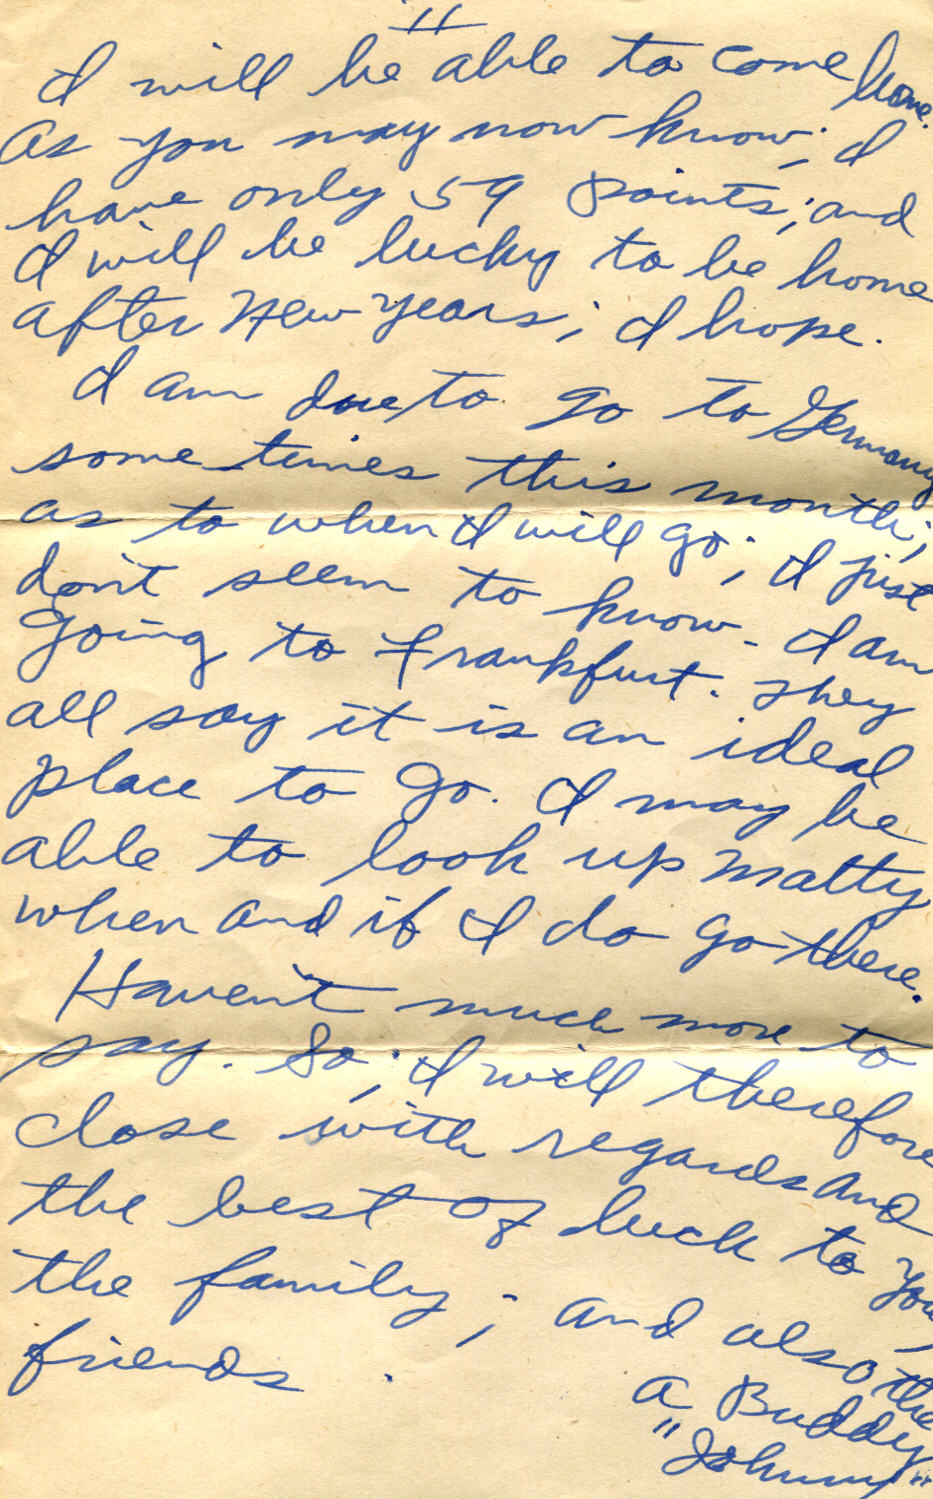 11
I will be able to come home.
As you may now know; I
have only 59 points; and
I will be lucky to be home
after New years; I hope.
I am due to go to Germany
some times this month;
as to when I will go; I just
don't seem to know - I am
going to Frankfurt. They
all say it is an ideal
place to go. I may be
able to look up Matty
when and if I do go there.
Haven't much more to
say. So; I will therefore
close with regards and
the best of luck to you,
the family; and also the
friends.
a Buddy
"Johnny"